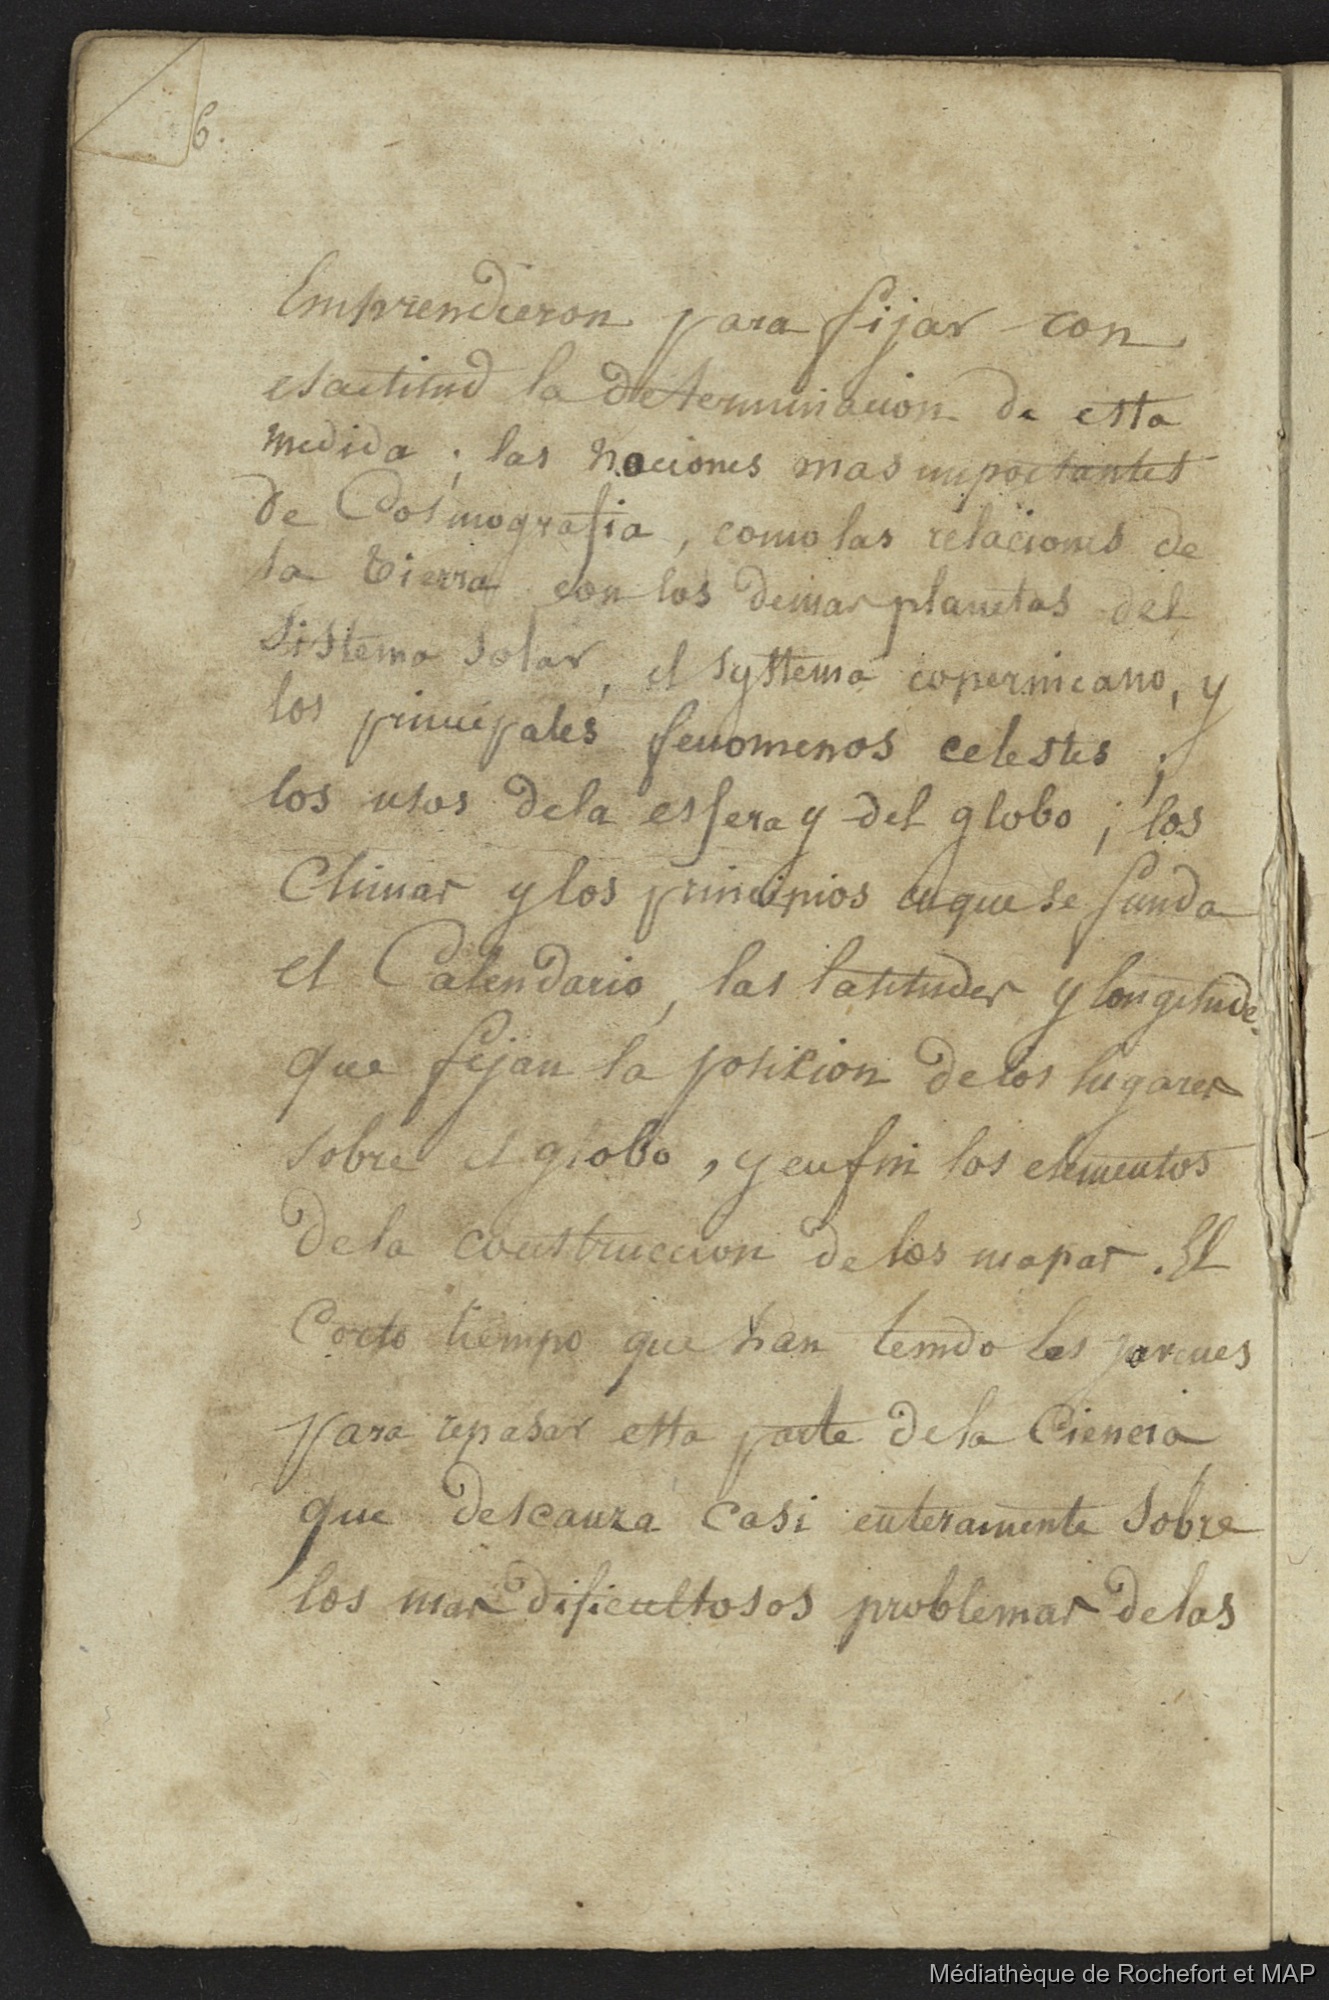 6.
Emprendieron para fijar con
esactitud la determinacion de esta
medida ; las nociones mas importantes
de Cosmografia , como las relaciones de
la tierra con los demas planetas del
Sistema solar, el systema copernicano, y
los principales fenomenos celestes ;
los usos dela esfera y del globo ; los
Climas y los principios en que se funda
el Calendario, las latitudes y longitudes
que fijan la posicion delos lugares
sobre el globo , y en fin los elementos
dela construccion de los mapas . El
Corto tiempo que han tenido los jovenes
para repasar esta parte dela Ciencia
que descanza casi enteramente sobre
los mas dificultosos problemas delas
Médiathèque de Rochefort et MAP